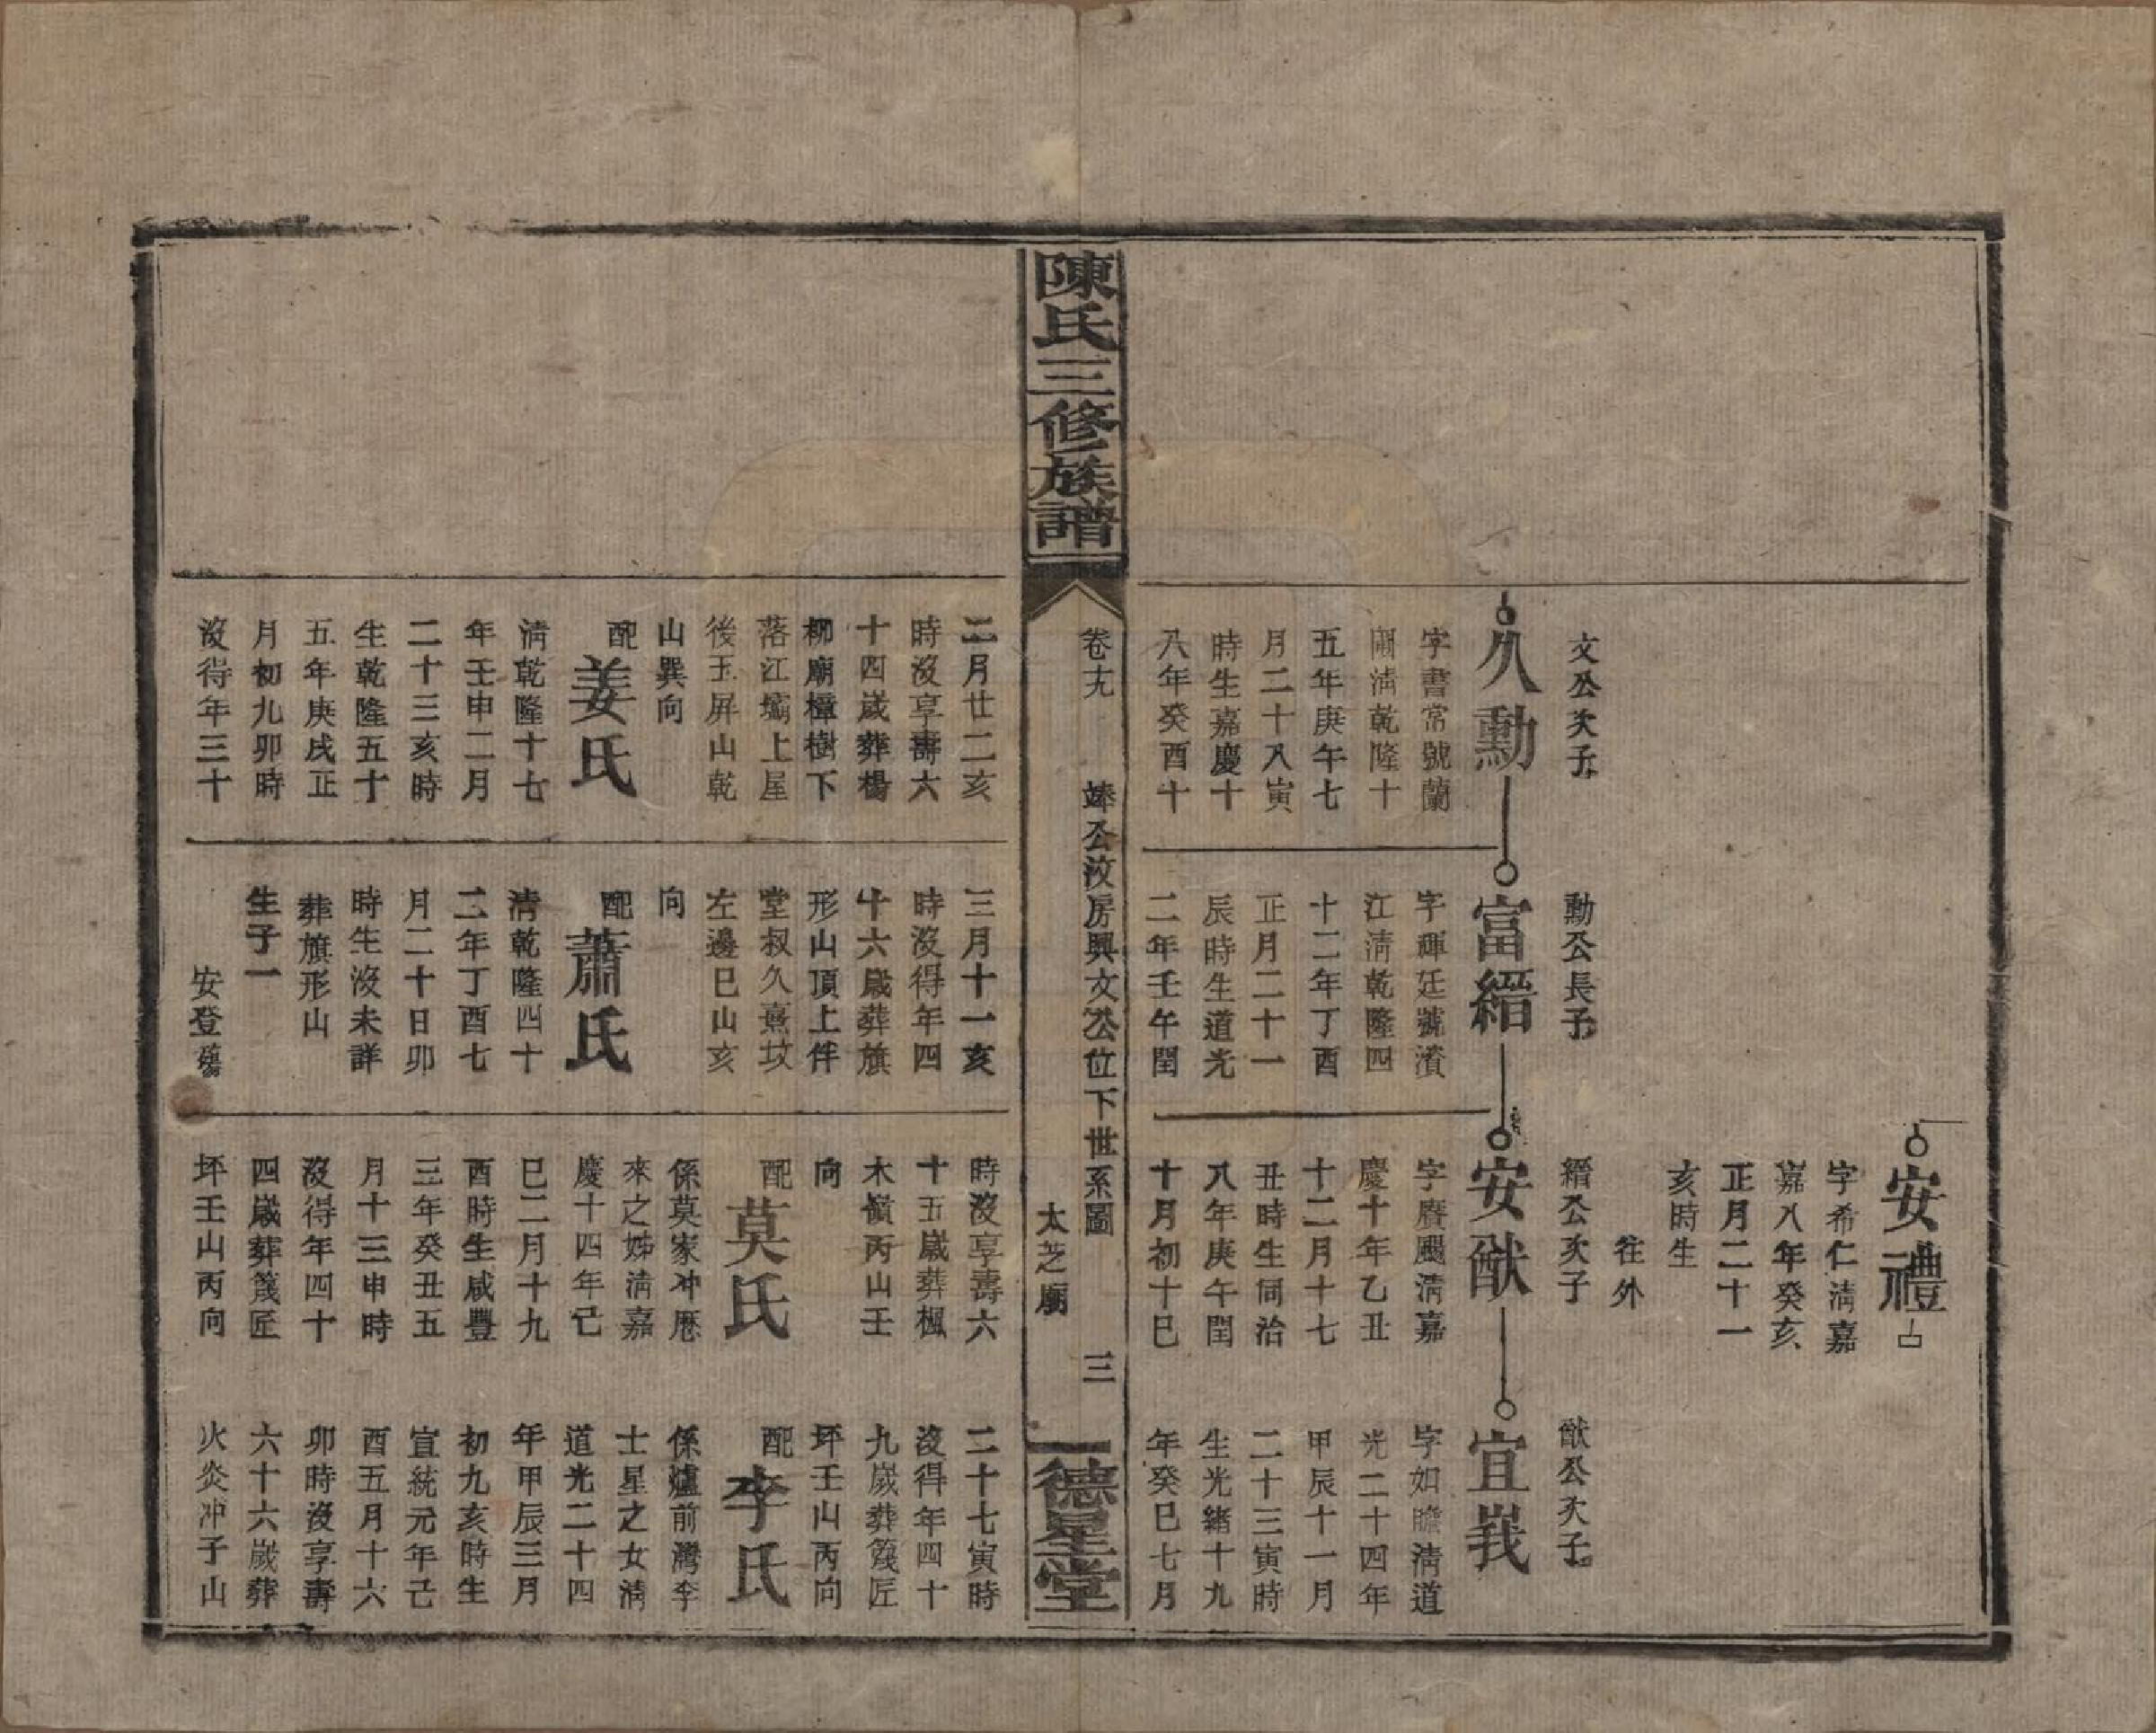 安禮
字希仁淸嘉
嘉八年癸亥
正月二十一
亥時生
往外
文公次子
久勳
字書常號蘭
閣淸乾隆十
五年庚午七
月二十八寅
時生嘉慶十
八年癸酉十
勳公長子
富縉
字輝廷號濱
江淸乾隆四
十二年丁酉
正月二十一
辰時生道光
二年壬午閏
縉公次子
安猷
字賡颺淸嘉
慶十年乙丑
十二月十七
丑時生同治
八年庚午閏
十月初十巳
猷公次子
宜峩
字如瞻淸道
光二十四年
甲辰十一月
二十三寅時
生光緒十九
年癸巳七月
陳氏三修族譜
卷十九
竦公汶房興文公位下世系圖
太芝廟
三
德星堂
二月廿二亥
時沒享壽六
十四歲葬楊
柳廟樟樹下
落江壩上屋
後玉屏山乾
山巽向
配
姜氏
淸乾隆十七
年壬申二月
二十三亥時
生乾隆五十
五年庚戌正
月初九卯時
沒得年三十
三月十一亥
時沒得年四
十六歲葬旗
形山頂上伴
堂叔久熹坟
左邊巳山亥
向
配
蕭氏
淸乾隆四十
二年丁酉七
月二十日卯
時生沒未詳
葬旗形山
生子一
安登殤
時沒享壽六
十五歲葬楓
木嶺丙山壬
向
配
莫氏
係莫家冲厯
來之姊淸嘉
慶十四年己
巳二月十九
酉時生咸豐
三年癸丑五
月十三申時
沒得年四十
四歲葬篾匠
坪壬山丙向
二十七寅時
沒得年四十
九歲葬篾匠
坪壬山丙向
配
李氏
係爐前灣李
士星之女淸
道光二十四
年甲辰三月
初九亥時生
宣統元年己
酉五月十六
卯時沒享壽
六十六歲葬
火炎冲子山